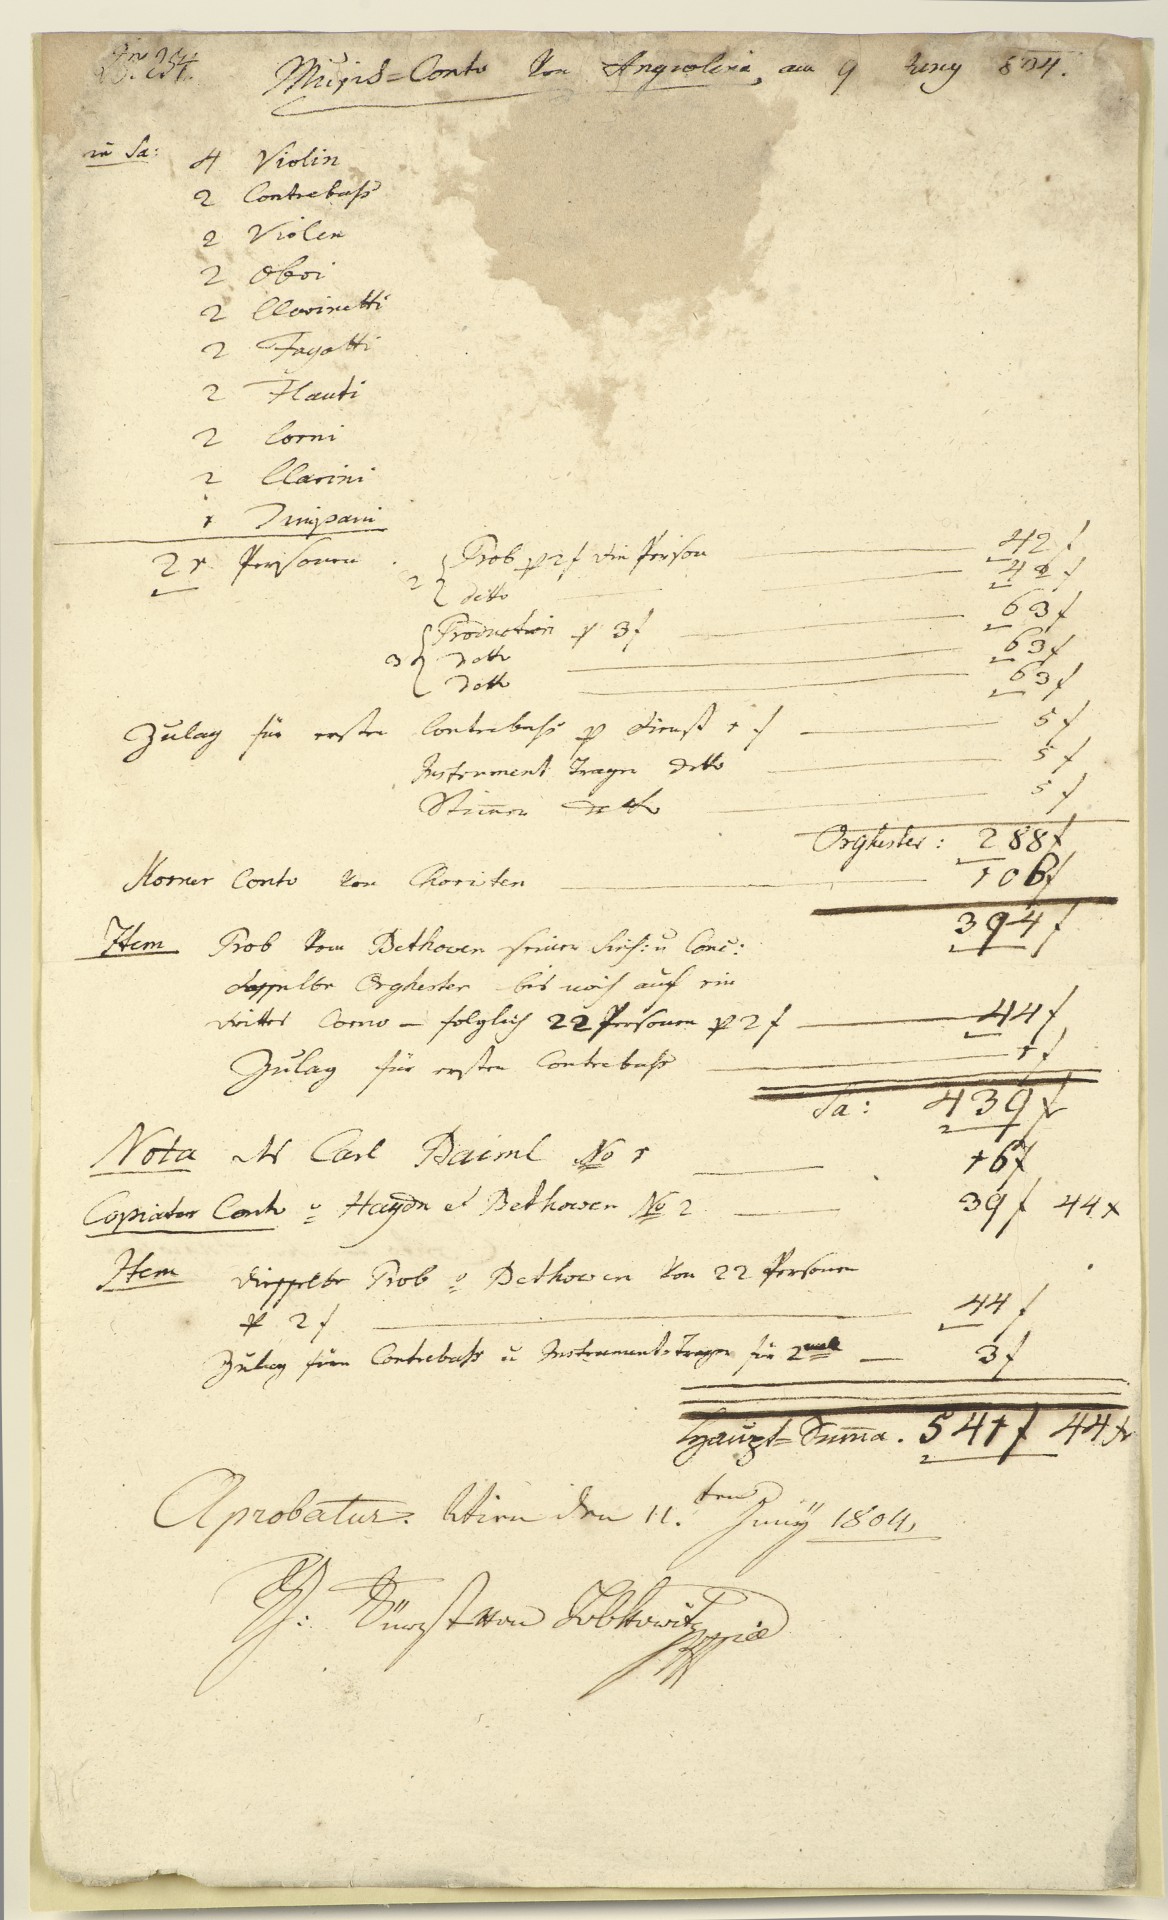 No 254.
Musick=Conto von Angiolina, am 9 Juny 804.
in Sa: 4 Violin
2 Contrebaß
2 Violen
2 Oboi
2 Clarinetti
2 Fagotti
2 Flauti
2 Corni
2 Clarini
1 Timpani
21 Personen 2 { Prob p 2 f die Person 42 f
ditto 42 f
3 { Production p 3 f 63 f
detto 63 f
detto 63 f
Zulag für ersten Contrebaß p Dienst 1 f 5 f
Instrument Tragen detto 5 f
Stimen detto 5 f
Orghester: 288 f
Korner Conto von Choristen 106 f
394 f
Item Prob vom Bethoven seiner Sinf: u Conc:
doppelte Orghester bis noch auf ein
drittes Corno – folglich 22 Personen p 2 f 44 f
Zulag für ersten Contrebaß 1 f
Sa: 439 f
Nota des Carl Baiml No 1 16 f
Copiatur Conto v Haydn et Bethowen No 2 39 f 44 x
Item doppelte Prob v Bethowen von 22 Personen
p 2 f 44 f
Zulag fürn Contrebaß u Instrumentstragen für 2mal 3 f
Haupt=Suma. 541 f 44 x
Aprobatur. Wien den 11.ten Junÿ 1804.
Fürst von Lobkowitz